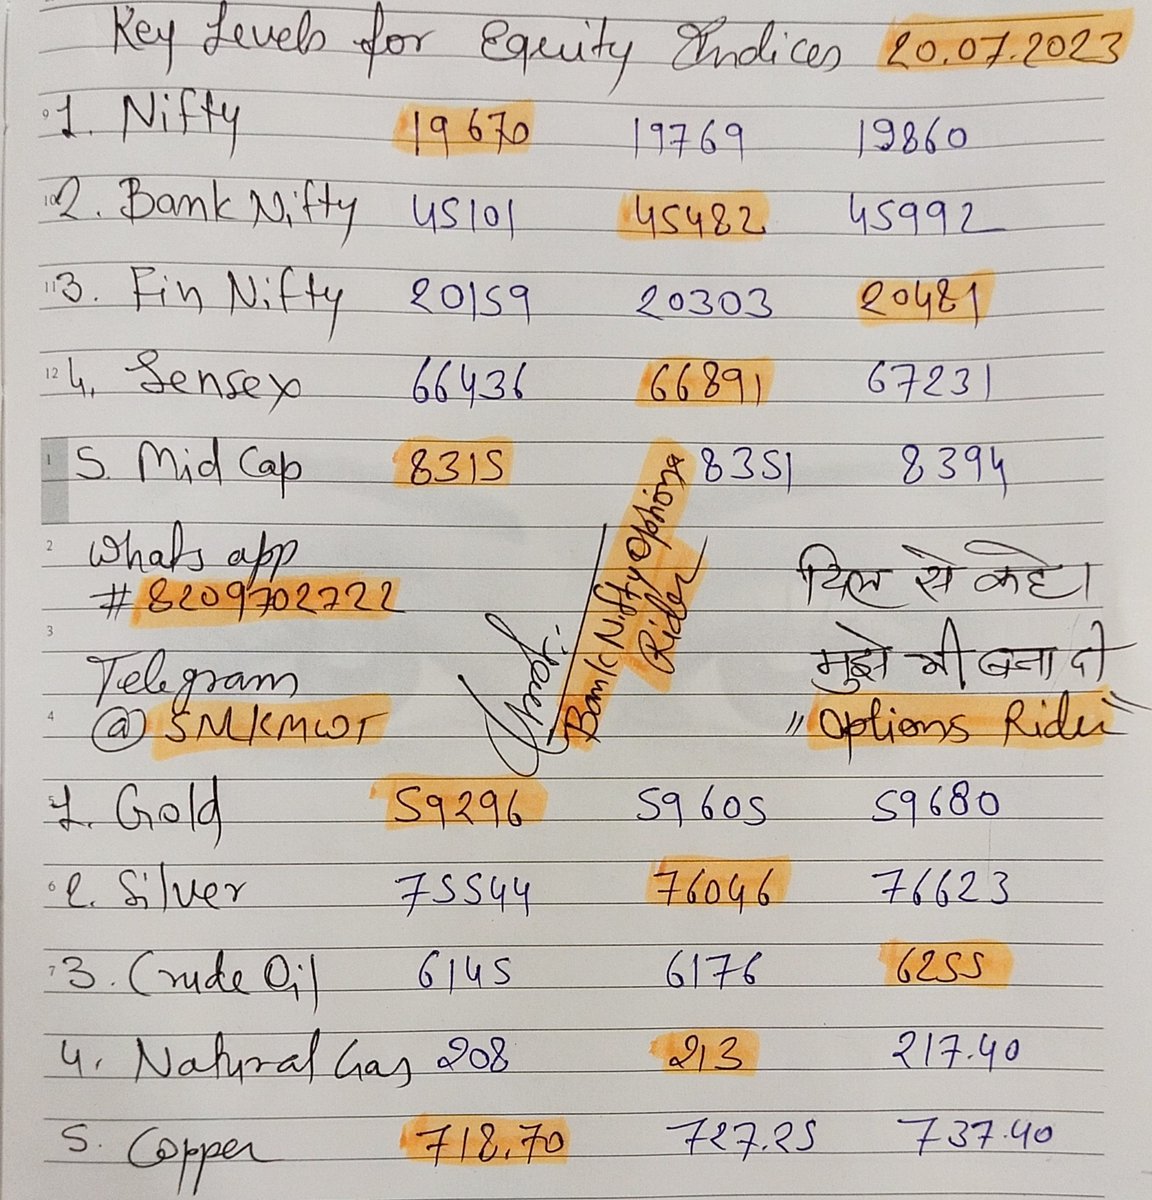 Key Levels for Equity Indices 20.07.2023
1. Nifty 19670 19769 19860
2. Bank Nifty 45101 45482 45992
3. Fin Nifty 20159 20303 20481
4. Sensex 66436 66891 67231
5. Mid Cap 8315 8351 8394
Whats app
# 8209702722
Telegram
@ SMKMWT
Bank Nifty Options
Rider
दिल से कहे।
मुझे भी बना दो
"Options Rider"
1. Gold 59296 59605 59680
2. Silver 75544 76046 76623
3. Crude Oil 6145 6176 6255
4. Natural Gas 208 213 217.40
5. Copper 718.70 727.25 737.40
9
10
11
12
1
2
3
4
6
7